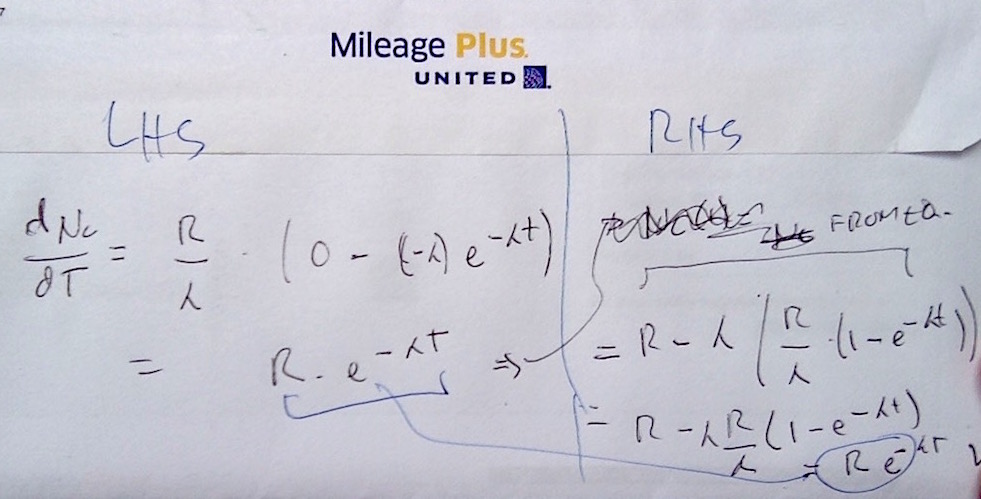 7
Mileage Plus.
UNITED
LHS
dNc/dT = R/λ · (0 - (-λ) e^-λt)
= R · e^-λT ⇒
RHS
FROM EQ.
= R - λ (R/λ · (1 - e^-λt))
= R - λ R/λ (1 - e^-λt)
= R e^-λT